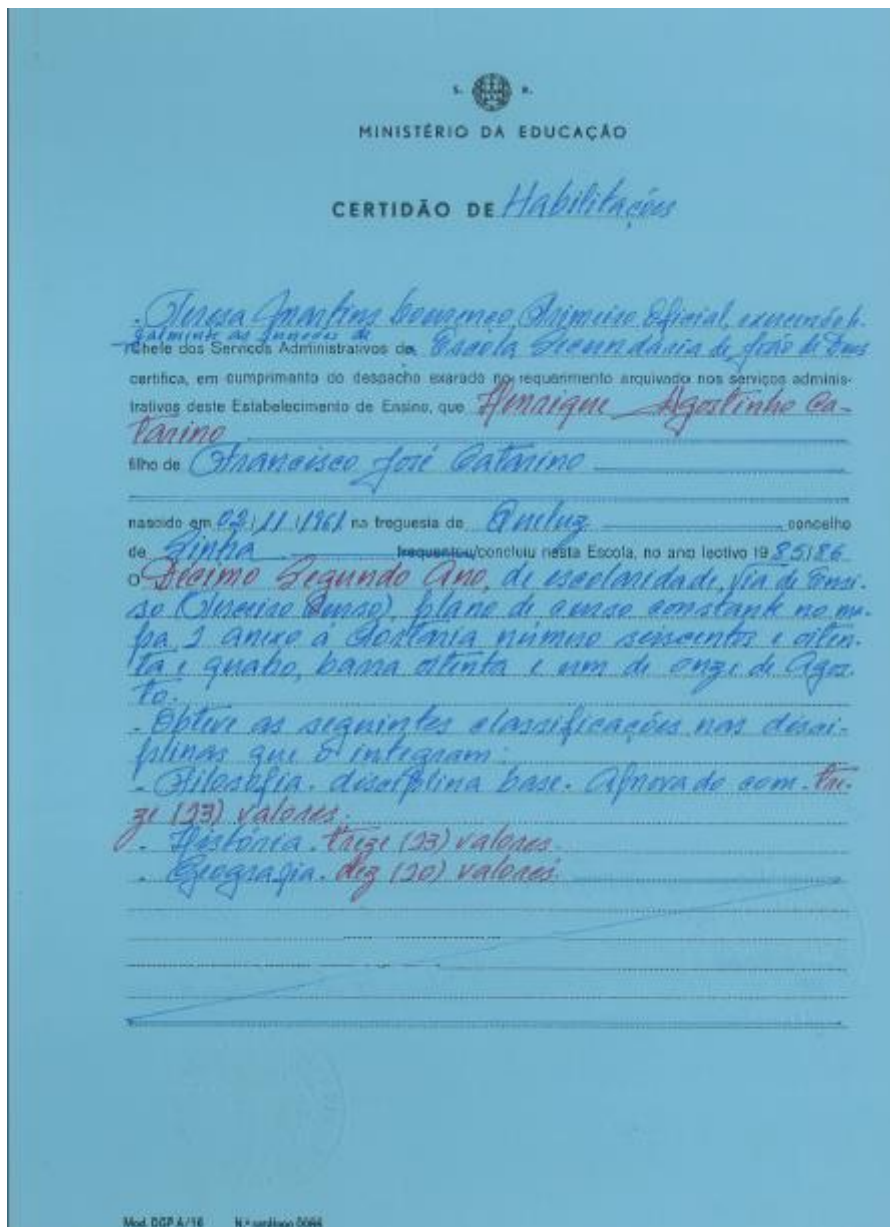 S. R.
MINISTÉRIO DA EDUCAÇÃO
CERTIDÃO DE Habilitações
- Teresa Martins Lourenço, Primeiro Oficial, exercendo
as funções de
Chefe dos Serviços Administrativos da Escola Secundária de João de Deus
certifica, em cumprimento do despacho exarado no requerimento arquivado nos serviços adminis-
trativos deste Estabelecimento de Ensino, que Henrique Agostinho Ca-
tarino
filho de Francisco José Catarino
nascido em 02/11/1961 na freguesia de Queluz concelho
de Sintra frequentou/concluiu nesta Escola, no ano lectivo 1985/86
O Décimo Segundo Ano, de escolaridade, Via de Ensi-
no (Terceiro Curso), plano de curso constante no ma-
pa 1 anexo à Portaria número seiscentos e oiten-
ta e quatro, barra oitenta e um de onze de Agos-
to.
- Obteve as seguintes classificações nas disci-
plinas que o integram:
- Filosofia - disciplina base - Aprovado com - tre-
ze (13) valores.
- História - treze (13) valores.
- Geografia - dez (10) valores
Mod. DGP A/16 N.º